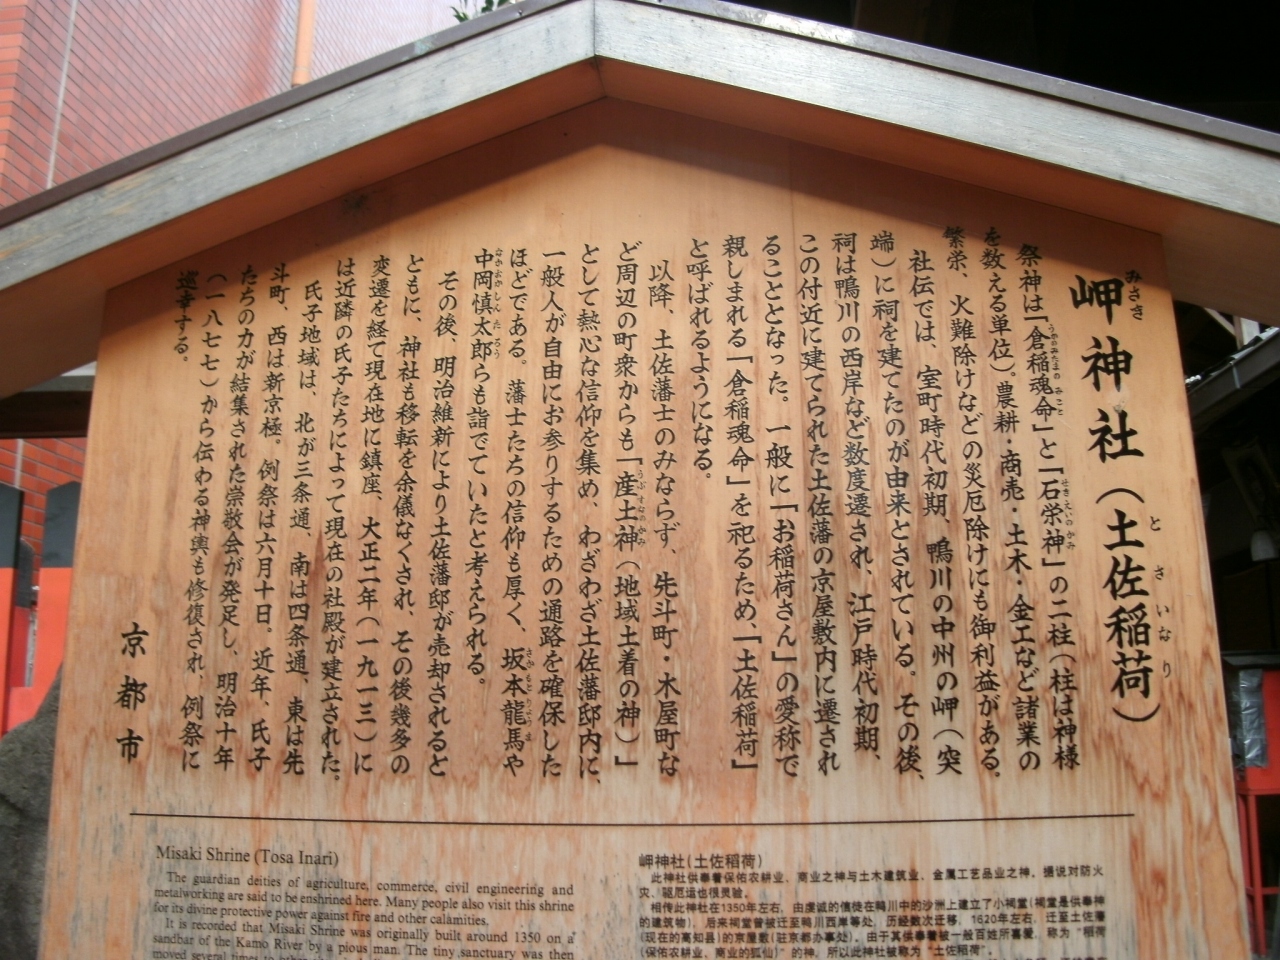 岬神社（土佐稲荷）
みささ
とさいなり
祭神は「倉稲魂命」と「石栄神」の二柱（柱は神様
うかのみたまのみこと
せきえいのかみ
を数える単位）。農耕・商売・土木・金工など諸業の
繁栄、火難除けなどの災厄除けにも御利益がある。
社伝では、室町時代初期、鴨川の中州の岬（突
端）に祠を建てたのが由来とされている。その後、
祠は鴨川の西岸など数度遷され、江戸時代初期、
この付近に建てられた土佐藩の京屋敷内に遷され
ることとなった。一般に「お稲荷さん」の愛称で
親しまれる「倉稲魂命」を祀るため、「土佐稲荷」
と呼ばれるようになる。
以降、土佐藩士のみならず、先斗町・木屋町な
ど周辺の町衆からも「産土神（地域土着の神）」
うぶすなのかみ
として熱心な信仰を集め、わざわざ土佐藩邸内に、
一般人が自由にお参りするための通路を確保した
ほどである。藩士たちの信仰も厚く、坂本龍馬や
さかもとりょうま
中岡慎太郎らも詣でていたと考えられる。
なかおかしんたろう
その後、明治維新により土佐藩邸が売却されると
ともに、神社も移転を余儀なくされ、その後幾多の
変遷を経て現在地に鎮座、大正二年（一九一三）に
は近隣の氏子たちによって現在の社殿が建立された。
氏子地域は、北が三条通、南は四条通、東は先
斗町、西は新京極。例祭は六月十日。近年、氏子
たちの力が結集された崇敬会が発足し、明治十年
（一八七七）から伝わる神輿も修復され、例祭に
巡幸する。
京都市
Misaki Shrine (Tosa Inari)
The guardian deities of agriculture, commerce, civil engineering and
metalworking are said to be enshrined here. Many people also visit this shrine
for its divine protective power against fire and other calamities.
It is recorded that Misaki Shrine was originally built around 1350 on a
sandbar of the Kamo River by a pious man. The tiny sanctuary was then
moved several times to other
岬神社（土佐稻荷）
此神社供奉着保佑农耕业、商业之神与土木建筑业、金属工艺品业之神。据说对防火
灾、驱厄运也很灵验。
相传此神社在1350年左右，由虔诚的信徒在鸭川中的沙洲上建立了小祠堂（祠堂是供奉神
的建筑物），后来祠堂曾被迁至鸭川西岸等处，历经数次迁移，1620年左右，迁至土佐藩
（现在的高知县）的京屋敷（驻京都办事处）。由于其供奉着被一般百姓所喜爱，称为“稻荷
（保佑农耕业、商业的狐仙）”的神，所以此神社被称为“土佐稻荷”。